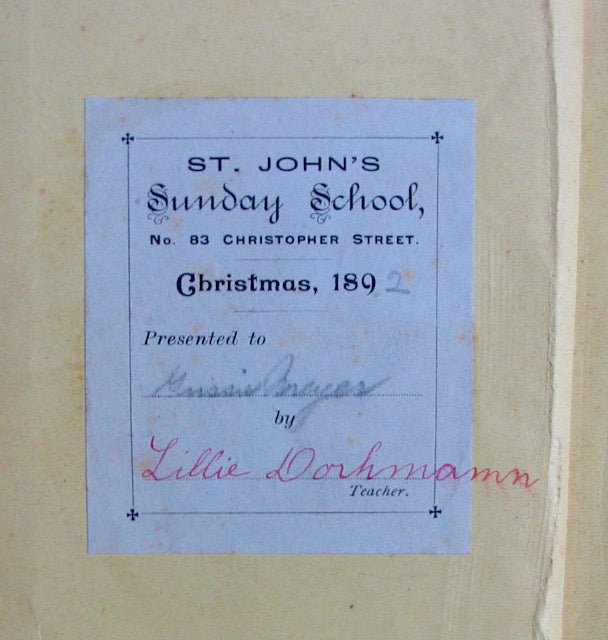 ST. JOHN'S
Sunday School,
No. 83 CHRISTOPHER STREET.
Christmas, 1892
Presented to
Meyer
by
Lillie Dorhmann
Teacher.